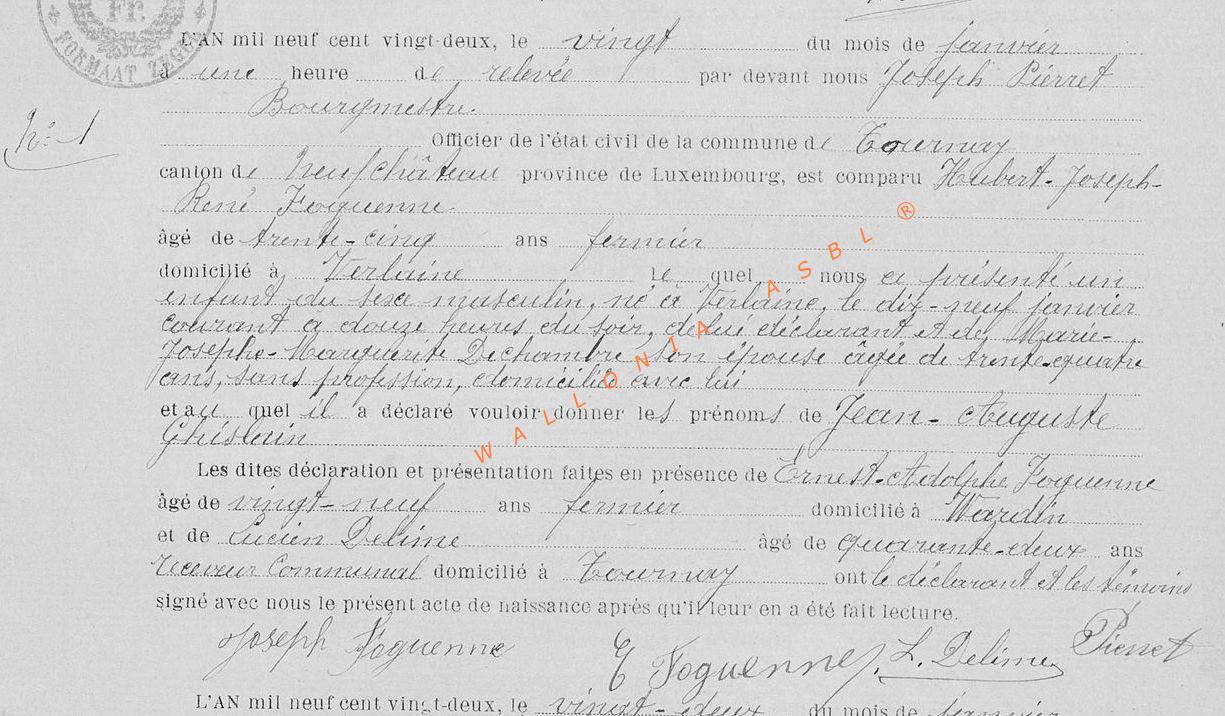 Fr.
FORMAAT ZEGEL
L'AN mil neuf cent vingt-deux, le vingt du mois de janvier
à une heure de relevée par devant nous Joseph Pierret
Bourgmestre.
N° 1
Officier de l'état civil de la commune de Tournay
canton de Neufchâteau province de Luxembourg, est comparu Hubert-Joseph-
René Foguenne.
âgé de trente-cinq ans fermier
domicilié à Verlaine le quel nous a présenté un
enfant du sexe masculin, né à Verlaine, le dix-neuf janvier
courant à douze heures du soir, de lui déclarant et de Marie-
Josephe-Marguerite Dechambre son épouse âgée de trente-quatre
ans, sans profession, domiciliée avec lui
et au quel il a déclaré vouloir donner les prénoms de Jean-Auguste
Ghislain
Les dites déclaration et présentation faites en présence de Ernest-Adolphe Foguenne
âgé de vingt-neuf ans fermier domicilié à Wardin
et de Lucien Delime âgé de quarante-deux ans
receveur Communal domicilié à Tournay ont le déclarant et les témoins
signé avec nous le présent acte de naissance après qu'il leur en a été fait lecture.
Joseph Foguenne E Foguenne L. Delime Pierret
L'AN mil neuf cent vingt-deux, le vingt-deux du mois de janvier
WALLONIA ASBL ®